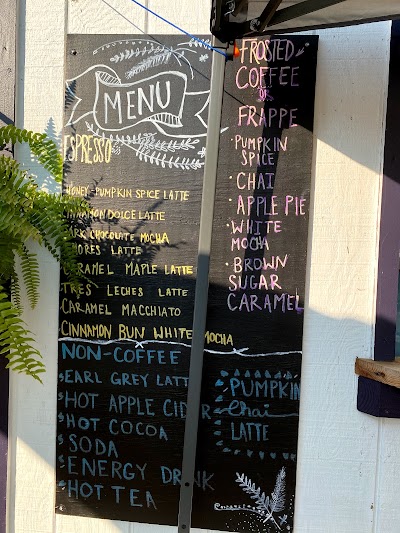 MENU
ESPRESSO
HONEY PUMPKIN SPICE LATTE
CINNAMON DOLCE LATTE
DARK CHOCOLATE MOCHA
S'MORES LATTE
CARAMEL MAPLE LATTE
TRES LECHES LATTE
CARAMEL MACCHIATO
CINNAMON BUN WHITE MOCHA
FROSTED
COFFEE
OR
FRAPPE
·PUMPKIN
SPICE
·CHAI
·APPLE PIE
·WHITE
MOCHA
·BROWN
SUGAR
CARAMEL
NON-COFFEE
EARL GREY LATTE
HOT APPLE CIDER
HOT COCOA
SODA
ENERGY DRINK
HOT TEA
PUMPKIN
Chai
LATTE